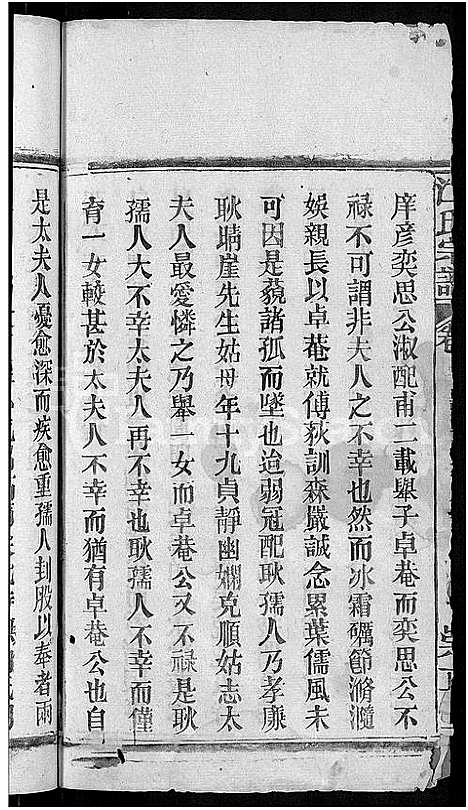 庠彥奕思公淑配甫二載舉子卓菴而奕思公不
祿不可謂非夫人之不幸也然而冰霜礪節滫瀡
娛親長以卓菴就傅荻訓森嚴誠念累葉儒風未
可因是藐諸孤而墜也迨弱冠配耿孺人乃孝廉
耿聽崖先生姑母年十九貞靜幽嫻克順姑志太
夫人最愛憐之乃舉一女而卓菴公又不祿是耿
孺人大不幸太夫人再不幸也耿孺人不幸而僅
育一女較甚於太夫人不幸而猶有卓菴公也自
是太夫人憂愈深而疾愈重孺人刲股以奉者兩